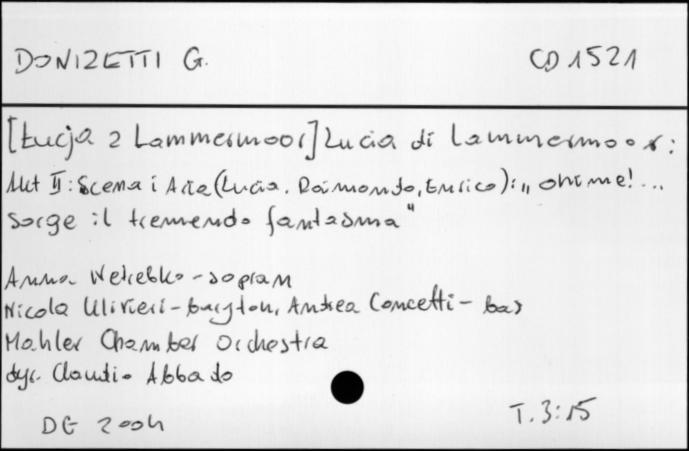 DONIZETTI G. CD 1521
[Łucja z Lammermoor] Lucia di Lammermoor:
Akt II: Scena i Aria (Lucia, Raimondo, Enrico): „ohime!...
Sorge il tremendo fantasma"
Anna Netrebko - sopran
Nicola Ulivieri - baryton, Andrea Concetti - bas
Mahler Chamber Orchestra
dyr. Claudio Abbado
DG 2004 T. 3:15